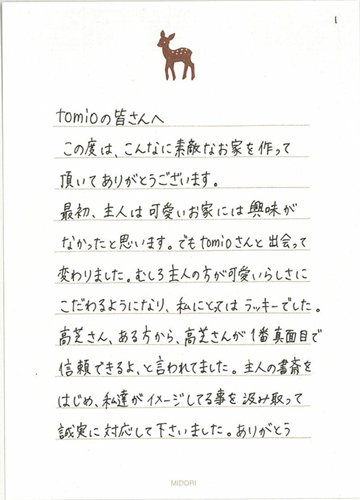 1
tomioの皆さんへ
この度は、こんなに素敵なお家を作って
頂いてありがとうございます。
最初、主人は可愛いお家には興味が
なかったと思います。でもtomioさんと出会って
変わりました。むしろ主人の方が可愛いらしさに
こだわるようになり、私にとってはラッキーでした。
高芝さん、ある方から、高芝さんが1番真面目で
信頼できるよ、と言われてました。主人の書斎を
はじめ、私達がイメージしてる事を汲み取って
誠実に対応して下さいました。ありがとう
MIDORI